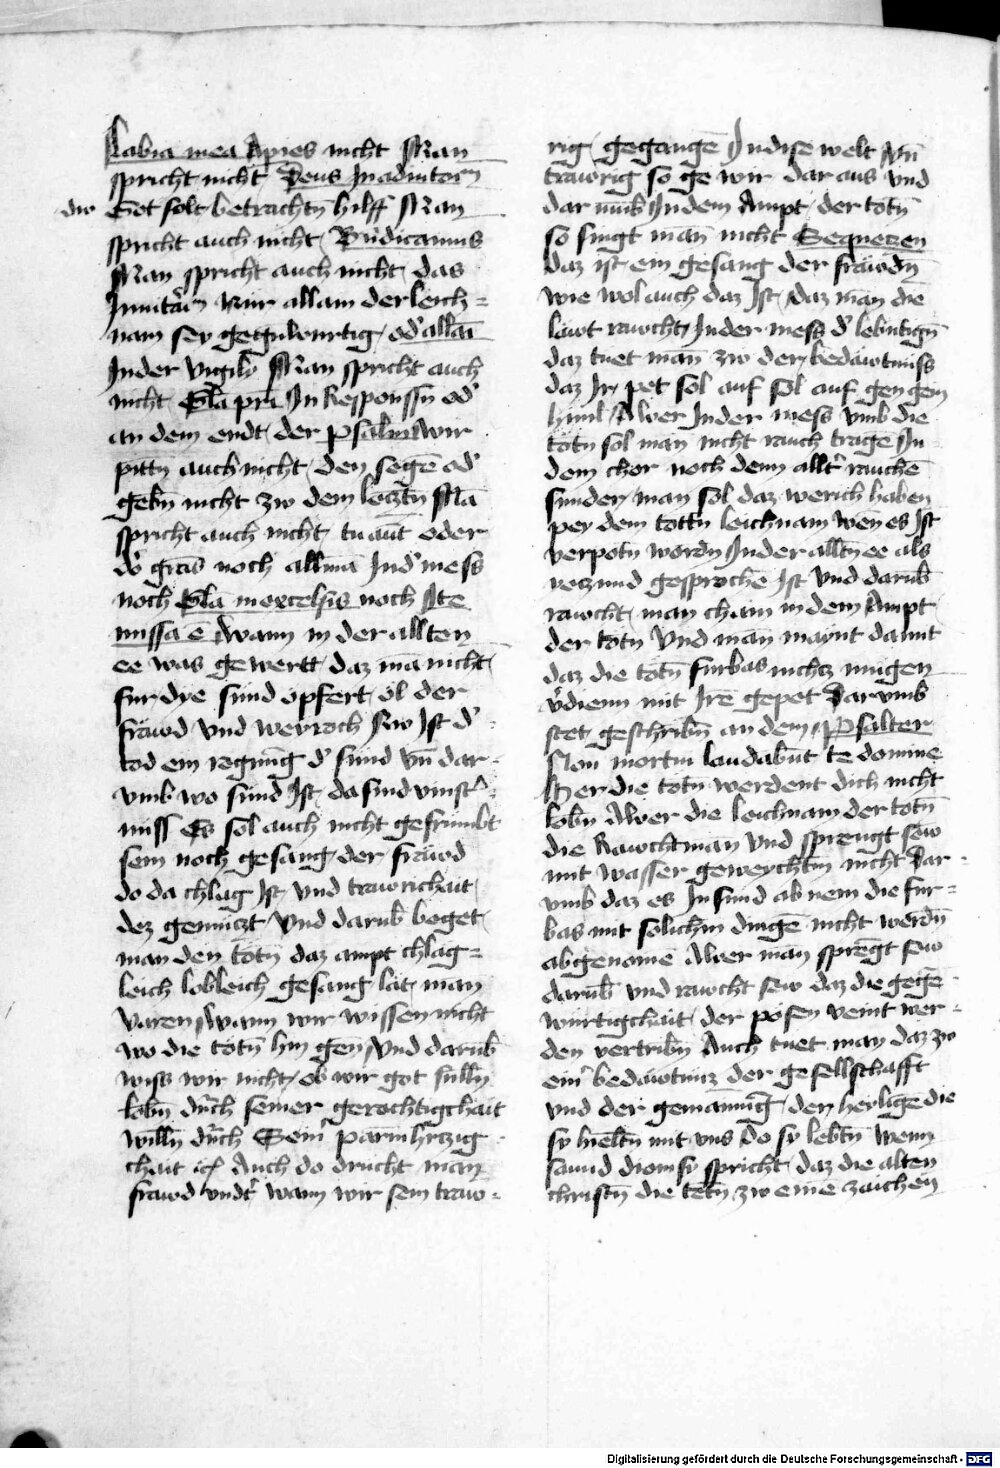 Labia mea Apies nicht Man
spricht nicht Deus Inadiutoriū
du Got solt betrachtn̄ hilff Man
spricht auch nicht Bn̄dicamus
Man spricht auch nicht das
nur allain der leich=
nam sey gegnburtig od' allaī
Inder vigily Man spricht auch
nicht Gla pr̄i In Responssn̄ od'
an dem endt der psalm wir
pittn auch nicht den segē od'
gebn̄ nicht zw dem letztn̄ Mā
spricht auch nicht tu aut̄ oder
do gras̄ noch allmā Ind' mess
noch Gla inexcelsis noch Ite
missa ē wann in der allten
ee was gewertt daz mā nicht
fur dye sund opfert ol der
frawd vnd weyroch Sw Ist d'
tod ein regnūg d' sund vn̄ dar
vmb wo sund Ist da sind vinst'
nuss Es sol auch nicht gefrumbt
sein noch gesang der frawd
do da chlag Ist vnd trawrichait
dez gemüczt vnd darub̄ beget
man den totn̄ daz ampt chlag=
leich lobleich gesang lat man
varen wann wir wissen nicht
wo die totn̄ hin gen vnd darub̄
wiss wir nicht ob wir got sulln̄
lobn̄ durch seiner gerechtigchait
willn̄ durch Seinr̄ parmhrtzig
chait Auch do drucht man
frawd vndr̄ wann wir sein traw=
rig gegangē In dise welt vn̄
trawrig so ge wir dar aus vnd
dar umb In dem Ampt der totn̄
so singt man nicht Sequetzen
daz ist ein gesang der frawdn̄
wie wol auch daz Ist daz man die
lawt rawcht Inder mess d' lebntign̄
daz tuet man zw der bedawtnuss
daz Ir pet sol auf sol auf gen gen
himl Awer Inder mess vmb die
totn sol man nicht rauch tragē In
dem chor noch denn alltr̄ rauchē
sunder man sol daz werich haben
pey dem tottn leichnam wen es Ist
verpotn wordn Inder alltn ee als
yetzund gesprochē Ist vnd darub̄
rawcht man chain in dem Ampt
der totn vnd man maint damit
daz die totn̄ furbas nichtz mugen
v'dienn mit Irē gepet Darvmb
stet geschribn̄ an dem Psalter
Non mortui laudabūt te domine
Her die totn werdent dich nicht
lobn Awer die leichnam der totn̄
die Rawcht man vnd sprengt sew
mit wasser geweychtm nicht Dar
vmb daz es In sund ab nem die fur=
bas mit solichm dingē nicht werdn̄
abgenome Awer man sprēgt sew
darub̄ vnd rawcht sew daz die gegē
wurtigchait der posen veint wer
den vertribn̄ Auch tuet man daz zw
einr̄ bedawtnuz der gesellschafft
vnd der gemainūg den heyligē die
sy hieltn mit vns do sy lebtn̄ wenn
sannd dionisy spricht daz die alten
christn̄ die totn̄ zw eine zaichen
Digitalisierung gefördert durch die Deutsche Forschungsgemeinschaft - DFG